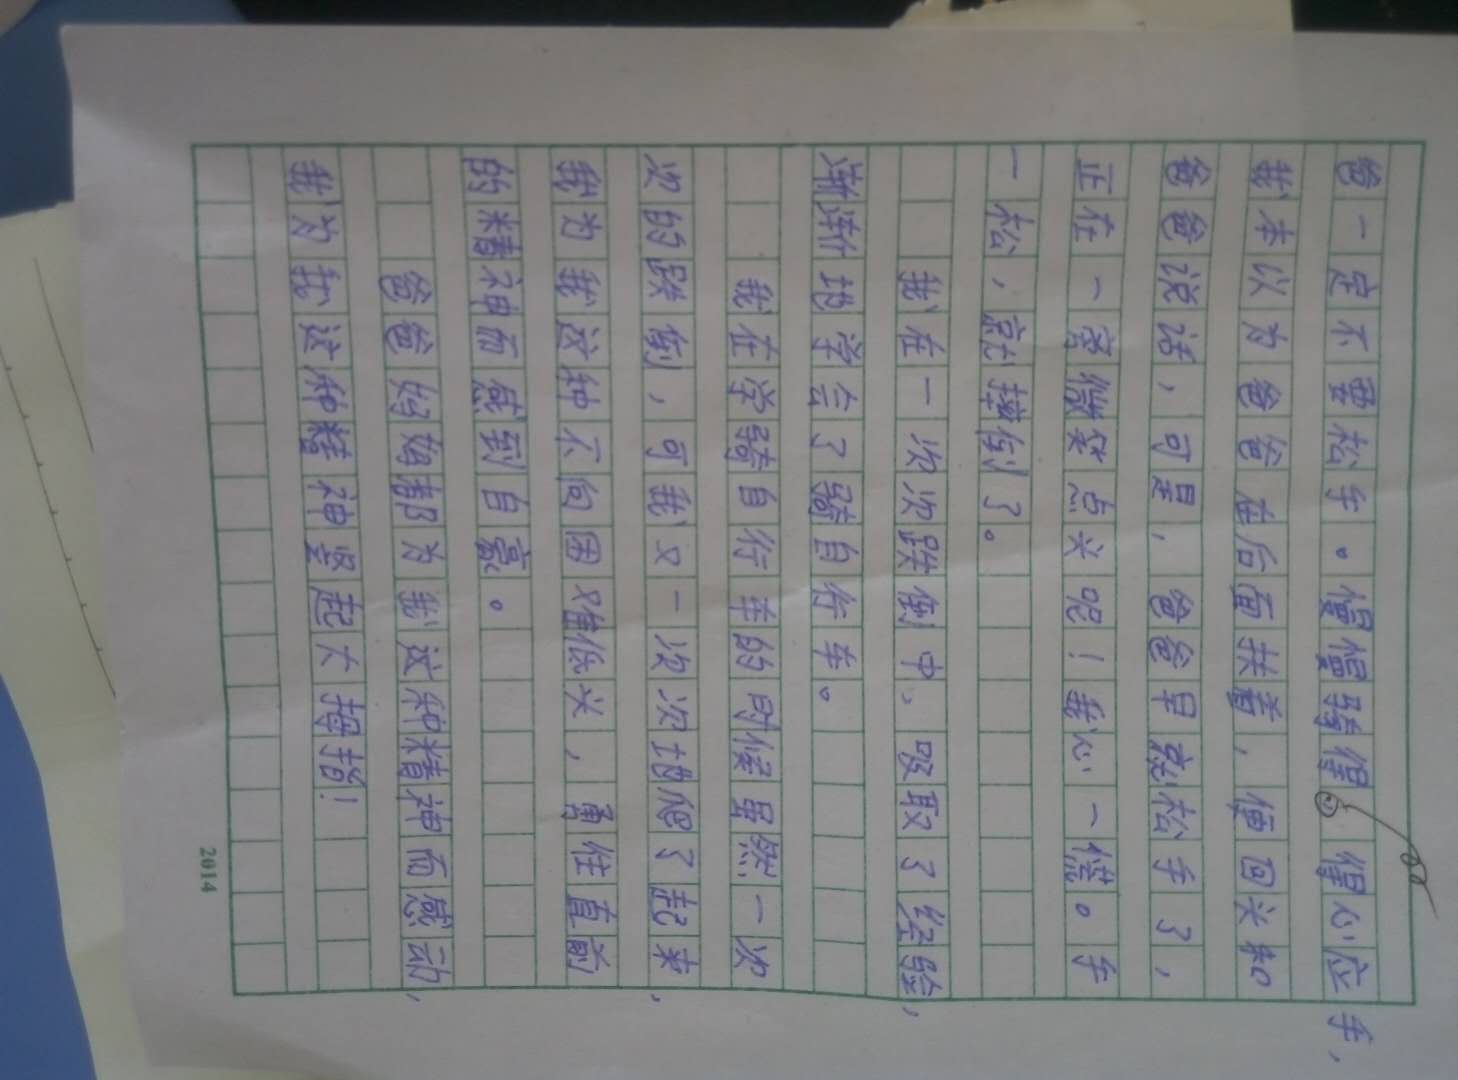 爸一定不要松手。慢慢骑得得心应手，
我本以为爸爸在后面扶着，便回头和
爸爸说话，可是，爸爸早就松手了，
正在一旁微笑点头呢！我心一慌。手
一松，就摔倒了。
我在一次次跌倒中、吸取了经验，
渐渐地学会了骑自行车。
我在学骑自行车的时候虽然一次
次的跌倒，可我又一次次地爬了起来，
我为我这种不向困难低头，勇往直前
的精神而感到自豪。
爸爸妈妈都为我这种精神而感动，
我为我这种精神竖起大拇指！
2014